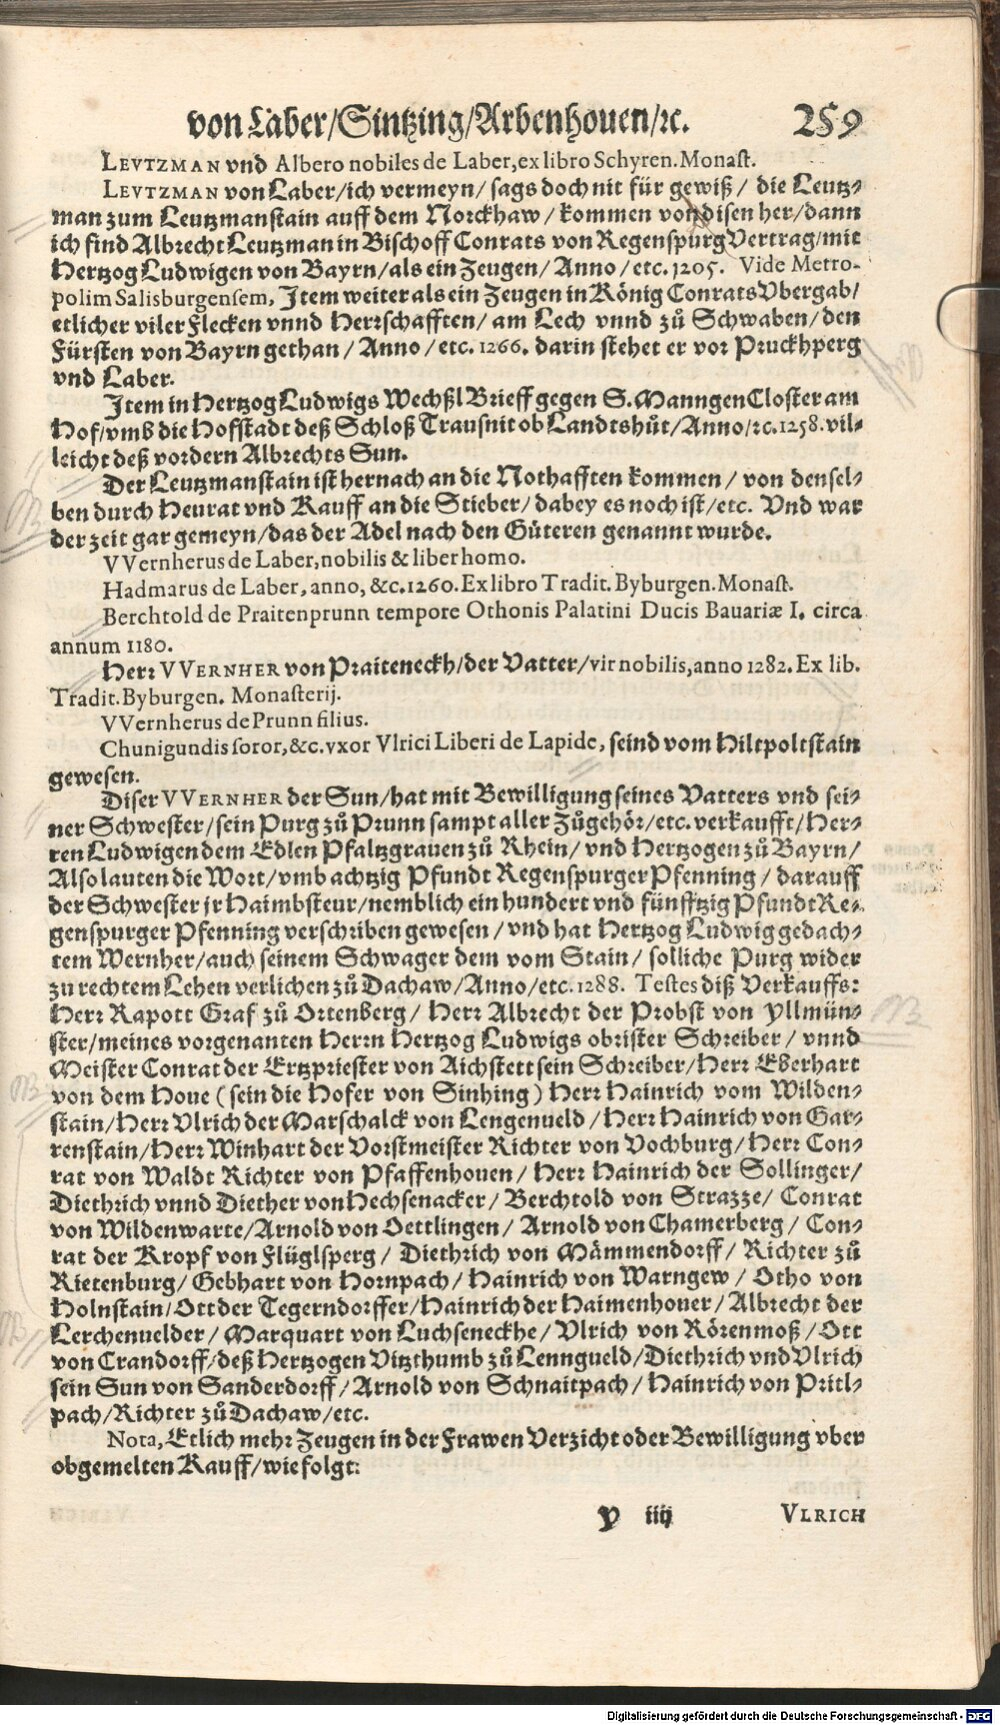 von Laber/Sintzing/Arbenhouen/ꝛc. 259
LEVTZMAN vnd Albero nobiles de Laber, ex libro Schyren. Monast.
LEVTZMAN von Laber/ich vermeyn/ sags doch nit für gewiß/ die Leutz-
man zum Leutzmanstain auff dem Norckhaw/ kommen von disen her/dann
ich find Albrecht Leutzman in Bischoff Conrats von Regenspurg Vertrag/mit
Hertzog Ludwigen von Bayrn/als ein Zeugen/ Anno/etc. 1205. Vide Metro-
polim Salisburgensem, Item weiter als ein Zeugen in König Conrats Vbergab/
etlicher viler Flecken vnnd Herrschafften/ am Lech vnnd zů Schwaben/den
Fürsten von Bayrn gethan/ Anno/etc. 1266. darin stehet er vor Pruckhperg
vnd Laber.
Item in Hertzog Ludwigs Wechßl Brieff gegen S. Manngen Closter am
Hof/vmb die Hofstadt deß Schloß Trausnit ob Landtshůt/Anno/ꝛc. 1258. vil-
leicht deß vordern Albrechts Sun.
Der Leutzmanstain ist hernach an die Nothafften kommen/ von densel-
ben durch Heurat vnd Kauff an die Stieber/dabey es noch ist/etc. Vnd war
der zeit gar gemeyn/das der Adel nach den Güteren genannt wurde.
VVernherus de Laber, nobilis & liber homo.
Hadmarus de Laber, anno, &c. 1260. Ex libro Tradit. Byburgen. Monast.
Berchtold de Praitenprunn tempore Othonis Palatini Ducis Bauariæ I. circa
annum 1180.
Herr VVERNHER von Praiteneckh/der Vatter/vir nobilis, anno 1282. Ex lib.
Tradit. Byburgen. Monasterij.
VVernherus de Prunn filius.
Chunigundis soror, &c. vxor Vlrici Liberi de Lapide, seind vom Hiltpoltstain
gewesen.
Diser VVERNHER der Sun/hat mit Bewilligung seines Vatters vnd sei-
ner Schwester/sein Purg zů Prunn sampt aller Zůgehör/etc. verkaufft/Her-
ren Ludwigen dem Edlen Pfaltzgrauen zů Rhein/ vnd Hertzogen zů Bayrn/
Also lauten die Wort/vmb achtzig Pfundt Regenspurger Pfenning/ darauff
der Schwester jr Haimbsteur/nemblich ein hundert vnd fünfftzig Pfundt Re-
genspurger Pfenning verschriben gewesen/vnd hat Hertzog Ludwig gedach-
tem Wernher/auch seinem Schwager dem vom Stain/ solliche Purg wider
zu rechtem Lehen verlichen zů Dachaw/Anno/etc. 1288. Testes diß Verkauffs:
Herr Rapott Graf zů Ortenberg/ Herr Albrecht der Probst von Yllmün-
ster/meines vorgenanten Herrn Hertzog Ludwigs obrister Schreiber/ vnnd
Meister Conrat der Ertzpriester von Aichstett sein Schreiber/Herr Eberhart
von dem Houe (sein die Hofer von Sinhing) Herr Hainrich vom Wilden-
stain/Herr Vlrich der Marschalck von Lengenueld/Herr Hainrich von Gar-
renstain/Herr Winhart der Vorstmeister Richter von Vochburg/Herr Con-
rat von Waldt Richter von Pfaffenhouen/ Herr Hainrich der Sollinger/
Diethrich vnnd Diether von Hechsenacker/ Berchtold von Strazze/ Conrat
von Wildenwarte/Arnold von Oettlingen/ Arnold von Chamerberg/ Con-
rat der Kropf von Flüglsperg/ Diethrich von Mämmendorff/ Richter zů
Rietenburg/ Gebhart von Hornpach/Hainrich von Warngew/ Otho von
Holnstain/Ott der Tegerndorffer/Hainrich der Haimenhouer/Albrecht der
Lerchenuelder/Marquart von Luchseneckhe/Vlrich von Rörenmoß/Ott
von Crandorff/deß Hertzogen Vitzthumb zů Lenngueld/Diethrich vnd Vlrich
sein Sun von Sanderdorff/Arnold von Schnaitpach/ Hainrich von Pritl-
pach/Richter zů Dachaw/etc.
Nota, Etlich mehr Zeugen in der Frawen Verzicht oder Bewilligung vber
obgemelten Kauff/wie folgt:
Y iiij VLRICH
Digitalisierung gefördert durch die Deutsche Forschungsgemeinschaft - DFG